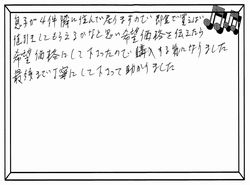 息子が4件隣に住んで居りますので即金で買えば
値引きしてもらえるかなと思い希望価格を伝えたら
希望価格にして下さったので購入する事になりました
最後まで丁寧にして下さって助かりました